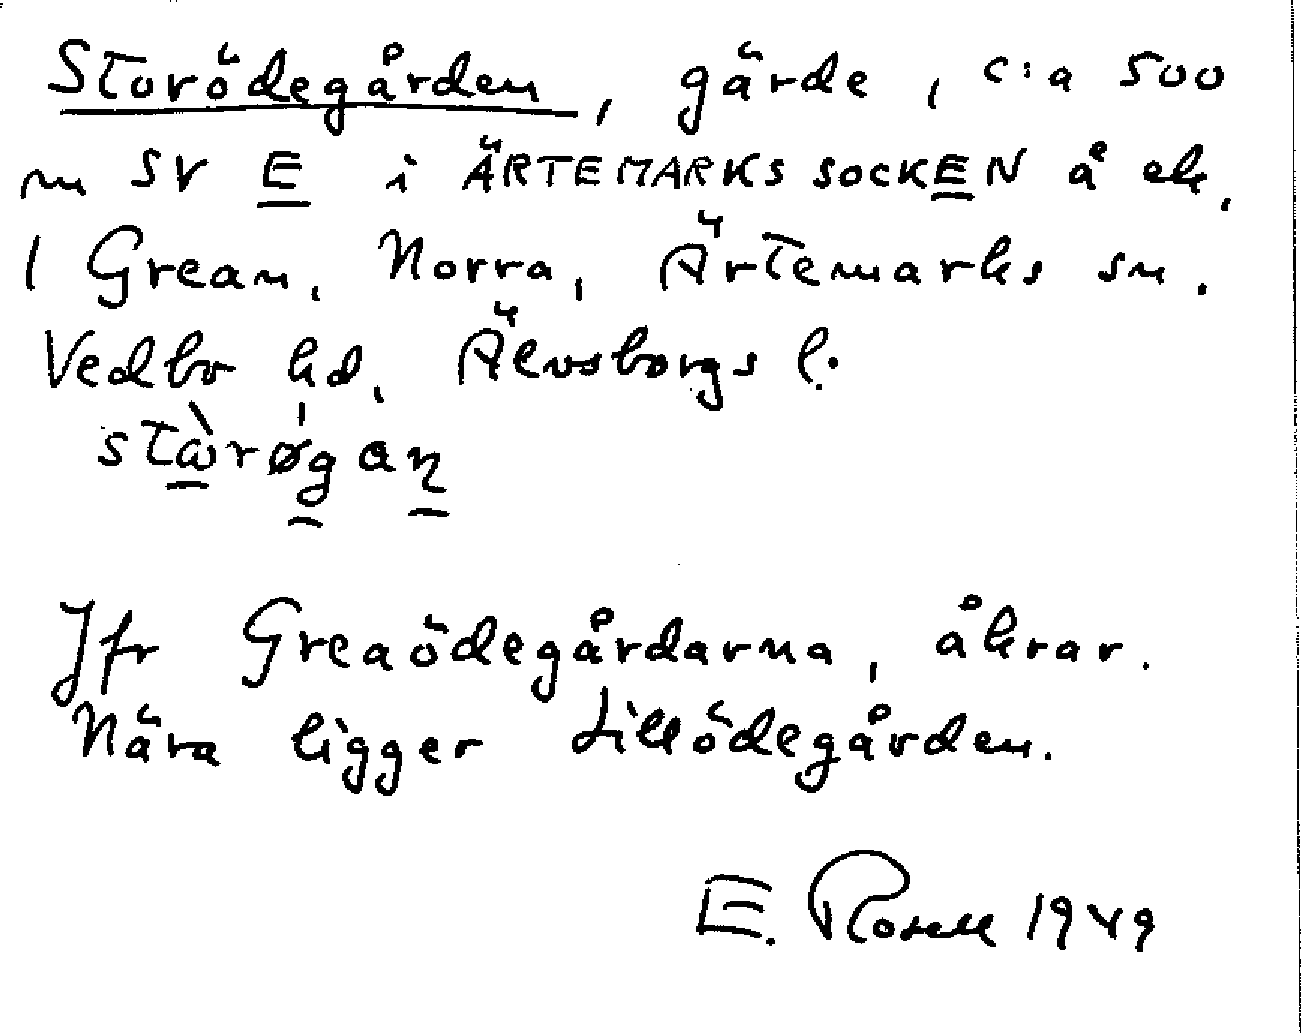 Storödegården, gärde, c:a 500
m SV E i ÄRTEMARKS SOCKEN å ek.
1 Grean, Norra, Ärtemarks sn.
Vedbo hd, Älvsborgs l.
Jfr Greaödegårdarna, åkrar.
Nära ligger Lillödegården.
E. Rosell 1949